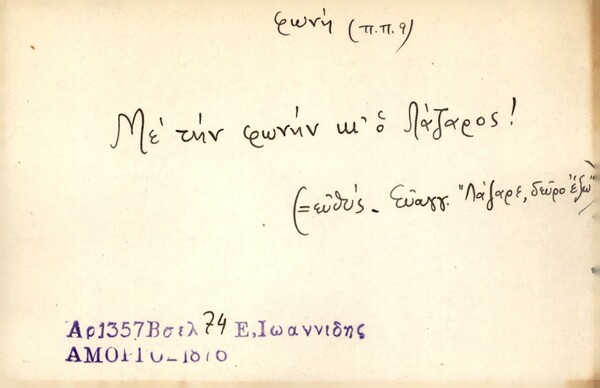 φωνή (π.π. 9)
Μὲ τὴν φωνὴν κι' ὁ Λάζαρος!
(=εὐθύς - Εὐαγγ. "Λάζαρε, δεῦρο ἔξω"
Αρ1357Βσελ 74 Ε,Ιωαννιδης
ΑΜΟΡΓΟ-1876